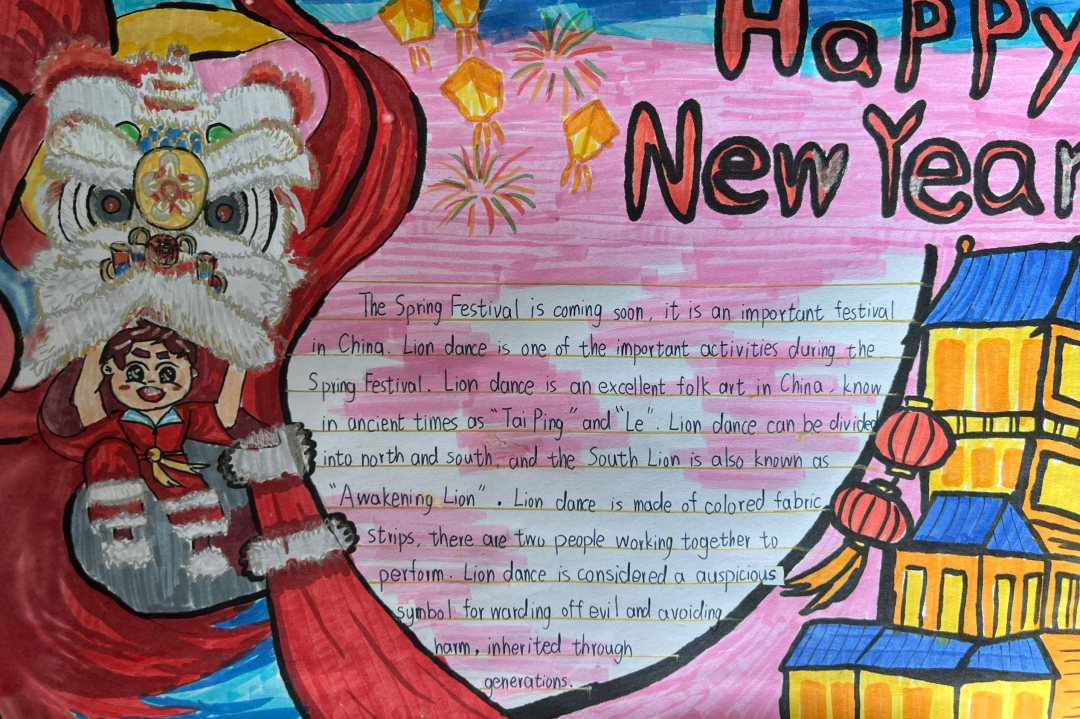 Happy
New Year
The Spring Festival is coming soon, it is an important festival
in China. Lion dance is one of the important activities during the
Spring Festival. Lion dance is an excellent folk art in China, know
in ancient times as "Tai Ping" and "Le". Lion dance can be divided
into north and south, and the South Lion is also known as
"Awakening Lion". Lion dance is made of colored fabric
strips, there are two people working together to
perform. Lion dance is considered a auspicious
symbol for warding off evil and avoiding
harm, inherited through
generations.